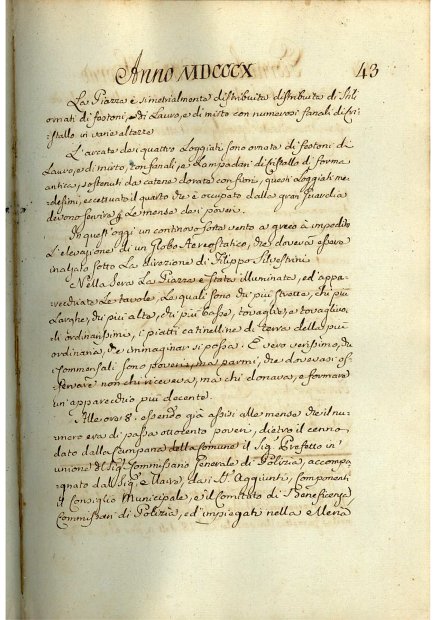 Anno MDCCCX 43
La Piazza è simetrialmente distribuita distribuita di Pil
ornati di festoni, di Lauro, e di mirto con numerosi fanali di Cri
stallo in varie altezze
L'arcate dei quattro Loggiati sono ornate di festoni di
Lauro, e di mirto, con fanali, e Lampadari di Cristallo di forma
antica, sostenuti da catene dorate con fiori, questi Loggiati me-
desimi, eccettuato il quarto che è occupato dalla gran Guardia
devono servire p le mense dei poveri.
In quest'oggi un continovo forte vento a greco à impedito
L'elevazione di un Globo Aereostatico, che doverà essere
inalzato sotto La direzione di Filippo Silvestrini
Nella Sera La Piazza è stata illuminata, ed appa-
recchiate Le tavole, Le quali sono da più strette, che più
Larghe, da più alte, che più basse, tovaglie, e tovaglio-
di ordinarissimi, i piatti catinelline di terra della più
ordinaria, che immaginar si possa. È vero verissimo, che
i commensali sono poveri, ma parmi, che dovevasi os-
servare non chi riceveva, ma chi donava, e formare
un'apparecchio più decente.
Alle ore 8. essendo già assisi alle mense che il nu-
mero era di passa ottocento poveri, dietro il cenno
dato dalla Campana della Comune il Sig.r Prefetto in
unione del Sig.r Commissario Generale di Polizia, accompa-
gnato dal Sig.r Maire, dai SS.ri Aggiunti, Componenti
il Consiglio Municipale, e il Comitato di Beneficenza
Commissari di Polizia, ed impiegati nella Meria